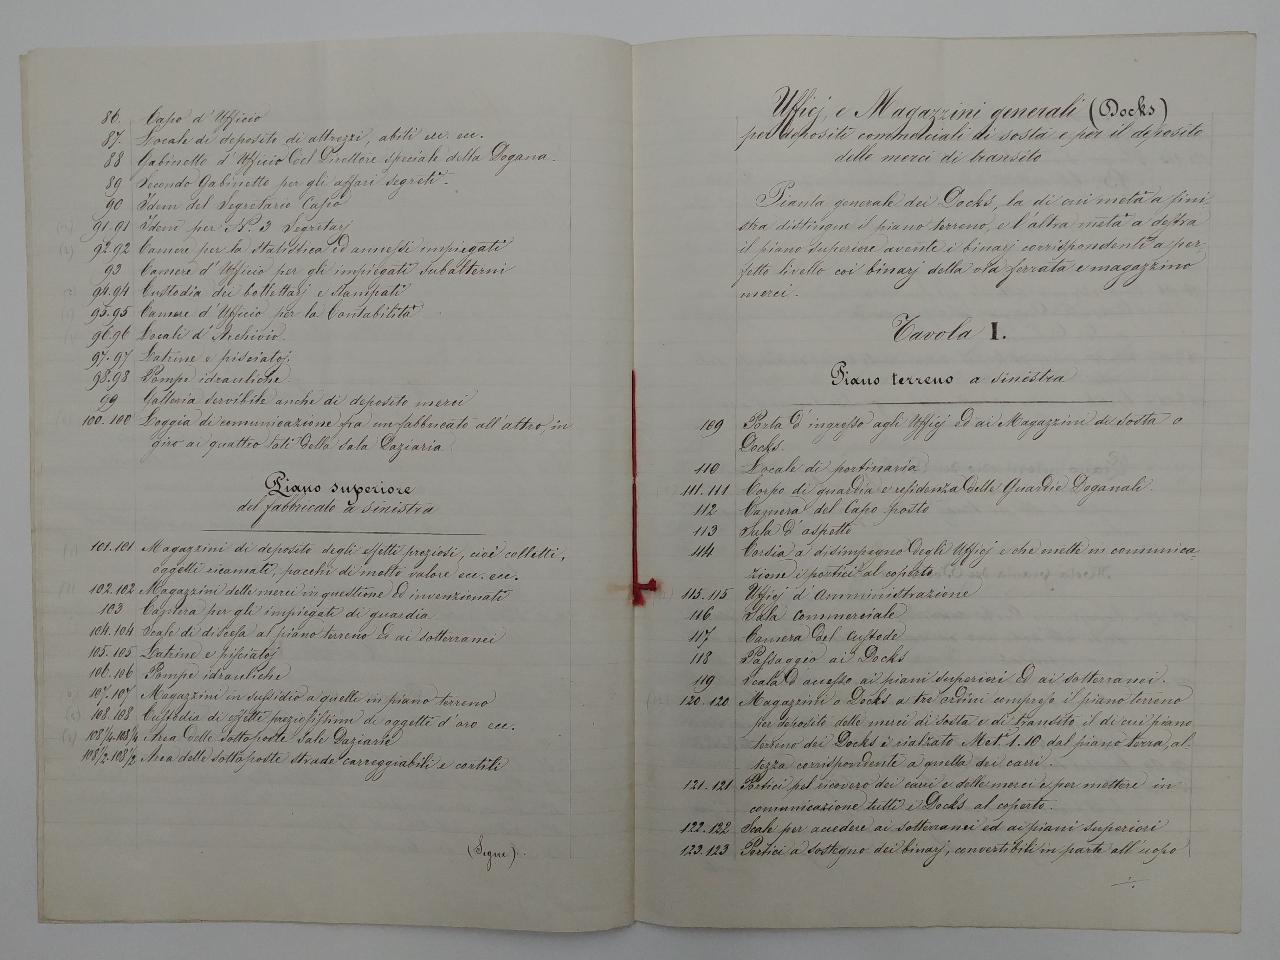 86. Capo d'Ufficio
87. Locale di deposito di attrezzi, abiti ecc. ecc.
88 Gabinetto d'Ufficio del Direttore speciale della Dogana.
89 Secondo Gabinetto per gli affari segreti.
90 Idem del Segretario Capo
91.91 Idem per N.º 3 Segretarj
92.92 Camere per la Statistica ed annessi impiegati
93 Camere d'Ufficio per gli impiegati subalterni
94.94 Custodia dei bollettarj e stampati
95.95 Camere d'Ufficio per la Contabilità
96.96 Locali d'Archivio.
97.97 Latrine e pisciatoj.
98.98 Pompe idrauliche
99 Galleria servibile anche di deposito merci
100.100 Loggia di comunicazione fra un fabbricato all'altro, in
giro ai quattro lati della sala Daziaria.
Piano superiore
del fabbricato a sinistra
101.101 Magazzini di deposito degli effetti preziosi, cioè colletti,
oggetti ricamati, pacchi di molto valore ecc. ecc.
102.102 Magazzini delle merci in questione ed invenzionati
103 Camera per gli impiegati di guardia
104.104 Scale di discesa al piano terreno ed ai sotterranei
105.105 Latrine e pisciatoj
106.106 Pompe idrauliche
107.107 Magazzini in sussidio a quelle in piano terreno
108.108 Custodia di effetti preziosissimi di oggetti d'oro ecc.
108 1/4.108 1/4 Area delle sottoposte Sale Daziarie
108 1/2.108 1/2 Area delle sottoposte strade carreggiabili e cortili
(Segue).
Ufficj e Magazzini generali (Docks)
per depositi commerciali di sosta e per il deposito
delle merci di transito
Pianta generale dei Docks, la di cui metà a sini-
stra distingue il piano terreno, e l'altra metà a destra
il piano superiore avente i binarj corrispondenti a per-
fetto livello coi binarj della via ferrata e magazzino
merci.
Tavola I.
Piano terreno a sinistra
109 Porta d'ingresso agli Ufficj ed ai Magazzini di sosta o
Docks.
110 Locale di portinaria
111.111 Corpo di guardia e residenza delle Guardie Doganali.
112 Camera del Capo posto
113 Sala d'aspetto
114 Corsia a disimpegno degli Ufficj e che mette in comunica-
zione i portici al coperto
115.115 Ufficj d'Amministrazione
116 Sala commerciale
117 Camera del custode
118 Passaggio ai Docks
119 Scala d'accesso ai piani superiori ed ai sotterranei.
120.120 Magazzini o Docks a tre ordini compreso il piano terreno
per deposito delle merci di sosta e di transito il di cui piano
terreno dei Docks è rialzato Met.ⁱ 1.10 dal piano terra, al-
tezza corrispondente a quella dei carri.
121.121 Portici pel ricovero dei carri e delle merci e per mettere in
comunicazione tutti i Docks al coperto.
122.122 Scale per accedere ai sotterranei ed ai piani superiori
123.123 Portici a sostegno dei binarj, convertibili in parte all'uopo